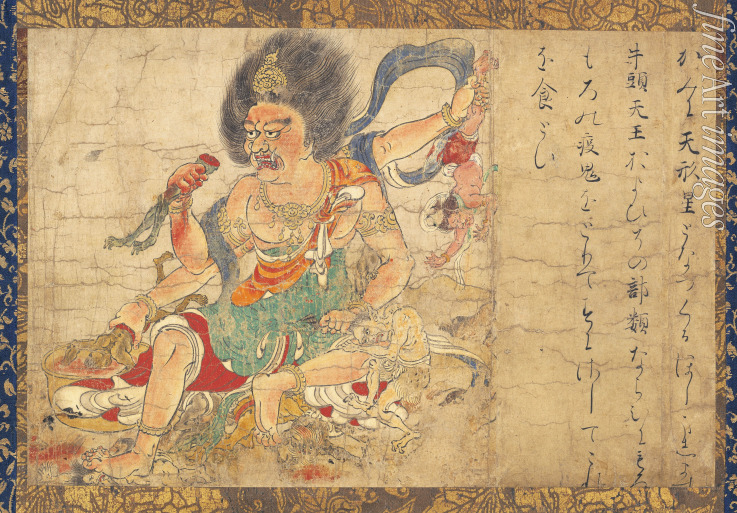 天形星となつくるほし
牛頭天王およひその部類ならひにもろ
もろの疫鬼をとりてすにさしてこれ
を食とす
fineArtimages